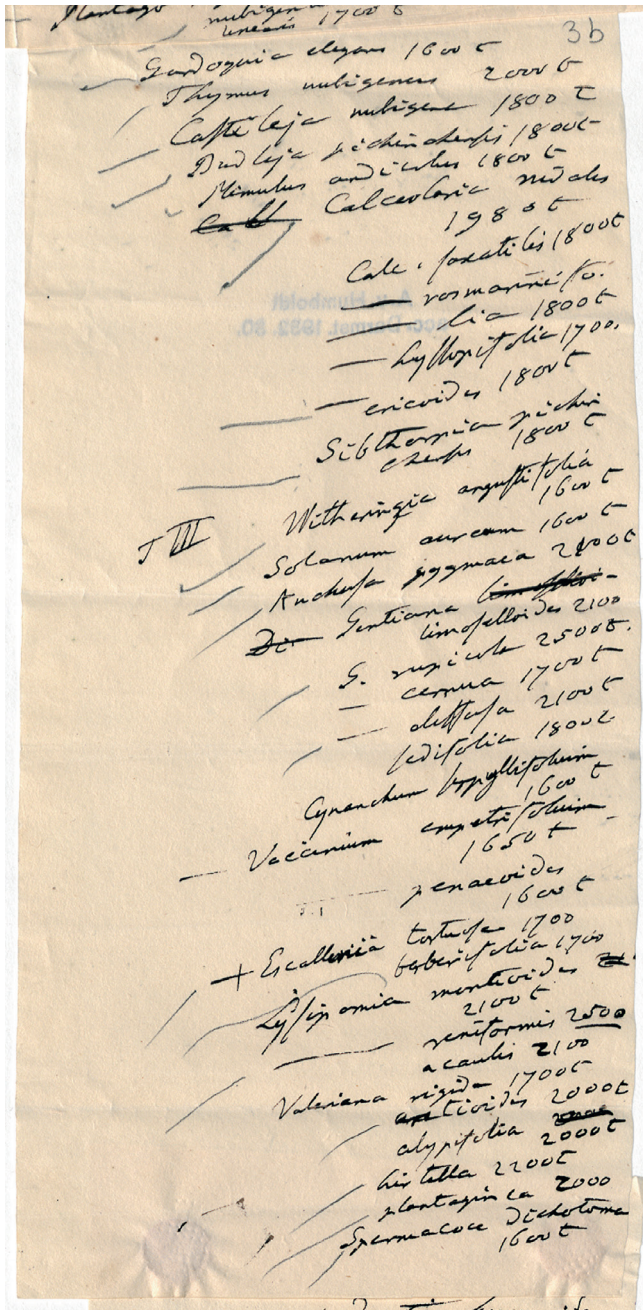 — Plantago nubigena
linearis 1700 t
3b
Gardoquia elegans 1600 t
Thymus nubigenus 2000 t
Castilleja nubigena 1800 t
Budleja pichinchensis 1800 t
Mimulus andicolus 1800 t
Call Calceolaria nivalis
1980 t
Calc. saxatilis 1800 t
— rosmarinifo-
lia 1800 t
— hyssopifolia 1700.
— ericoides 1800 t
Sibthorpia pichin
chensis 1800 t
J III
Witheringia angustifolia
1600 t
Solanum aureum 1600 t
Anchusa pygmaea 2100 t
Gentiana
limoselloides 2100
G. rupicola 2500 t.
— cernua 1700 t
— diffusa 2100 t
sedifolia 1800 t
Cynanchum serpyllifolium
1600 t
— Vaccinium empetrifolium
1650 t
penaeoides
1600 t
+ Escallonia tortuosa 1700
berberifolia 1700
Lysipomia montioides
2100 t
— reniformis 2500
acaulis 2100
Valeriana rigida 1700 t
aretioides 2000 t
alypifolia
2000 t
hirtella 2200 t
plantaginea 2000
Spermacoce dichotoma
1600 t